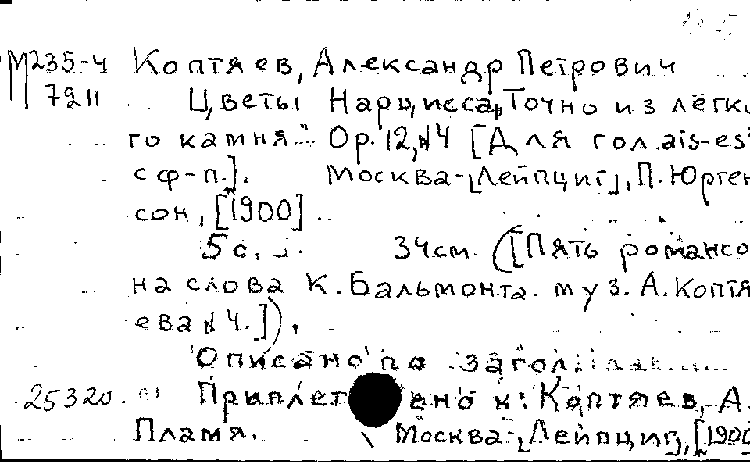 М235-4 Коптяев, Александр Петрович
7211 Цветы Нарцисса „Точно из лёгко
го камня..." Ор. 12, №4 [Для гол. ais-es²
с ф-п.]. Москва-[Лейпциг], П. Юрген
сон, [1900]
5 с. 34см. ([Пять романсо
на слова К. Бальмонта. муз. А. Коптя
ева № 4.]).
Описано по
25320 Приплет ено к: Коптяев, А.
Пламя. Москва-[Лейпциг], [1900